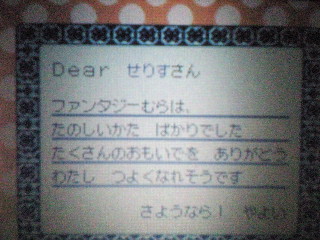 Dear せりすさん
ファンタジーむらは、
たのしいかた ばかりでした
たくさんのおもいでを ありがとう
わたし つよくなれそうです
さようなら! やよい